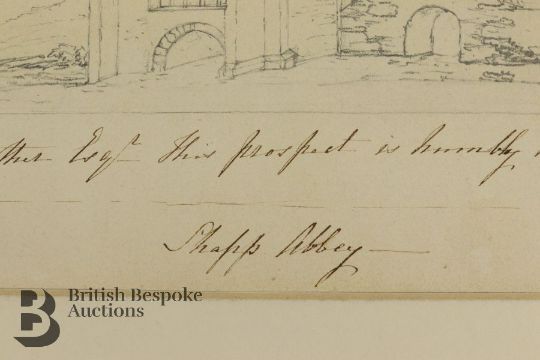 Esqr This prospect is humbly
Shapp Abbey —
British Bespoke
Auctions